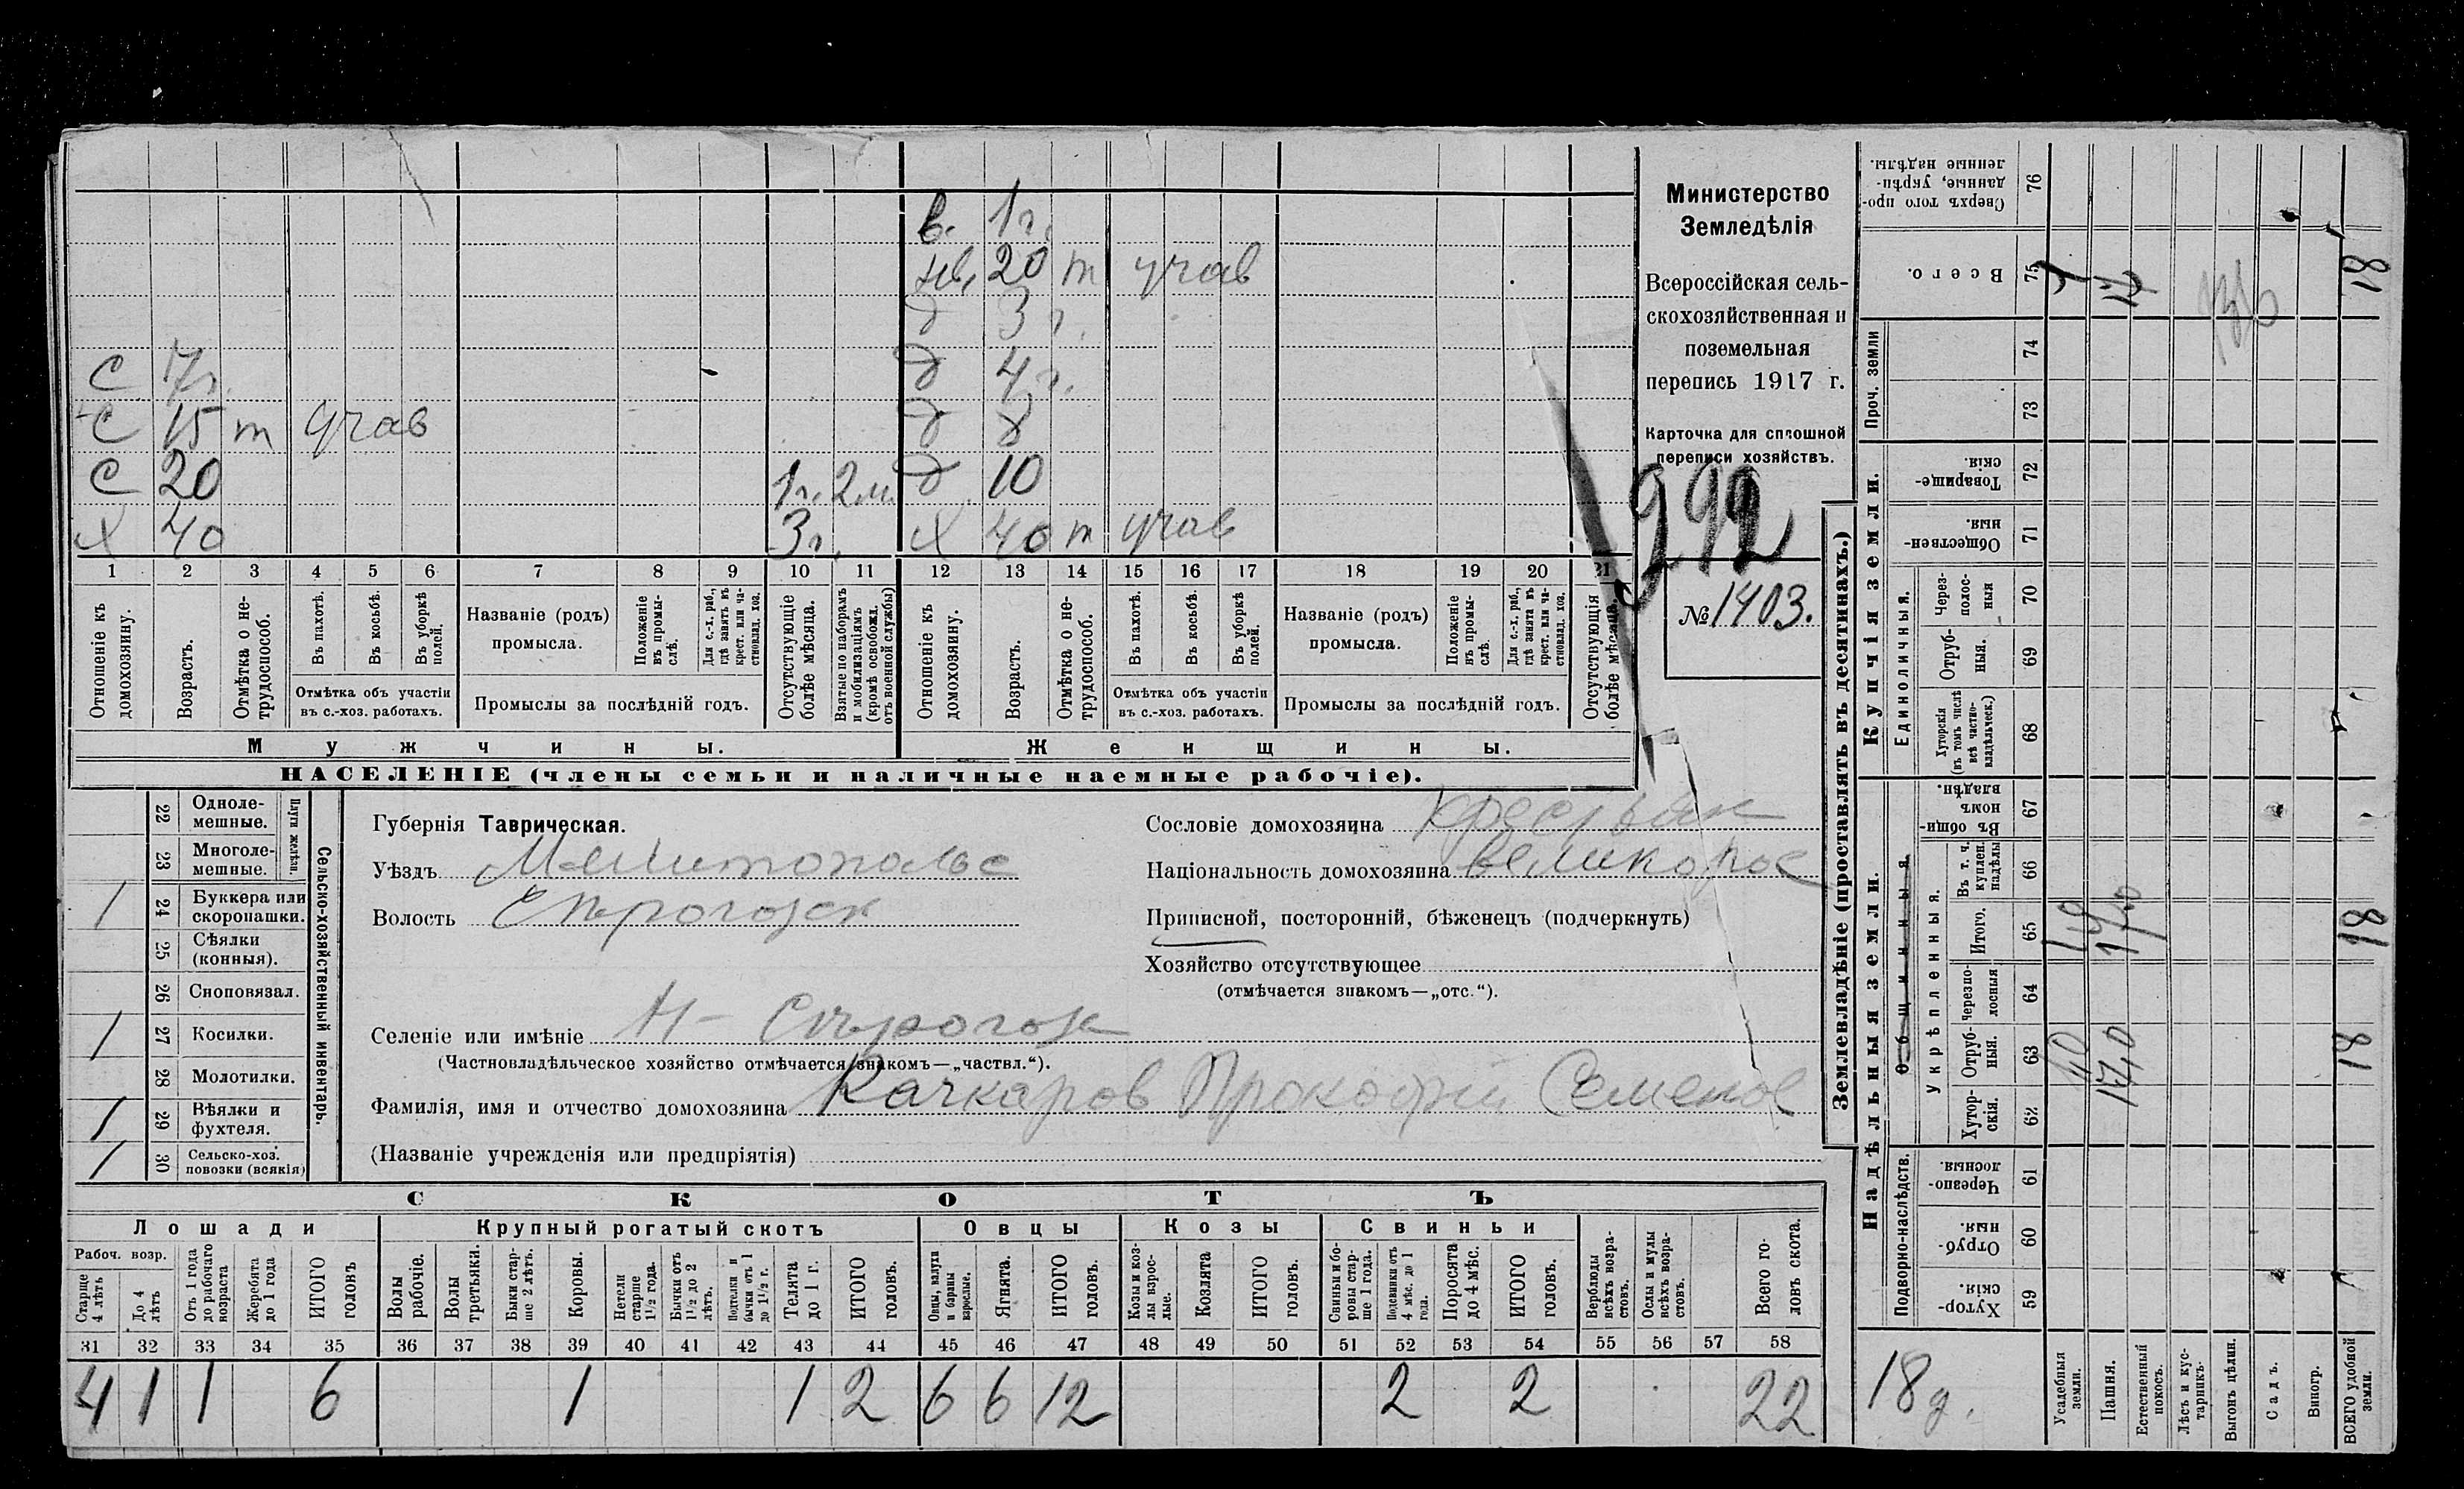 в. 1 г.
нев. 20 т учав
д 3 г.
с 7 г. д 4 г.
с 15 т учав д 8
с 20 1 г. 2 м. д 10
х 40 3 г. х 40 т учав
1 2 3 4 5 6 7 8 9 10 11 12 13 14 15 16 17 18 19 20 21
Отношеніе къ домохозяину.
Возрастъ.
Отмѣтка о не-трудоспособ.
Въ пахотѣ.
Въ косьбѣ.
Въ уборкѣ полей.
Отмѣтка объ участіи
въ с.-хоз. работахъ.
Названіе (родъ)
промысла.
Положеніе въ промы-слѣ.
Для с.-х. раб., гдѣ занятъ въ крест. или ча-стновлад. хоз.
Промыслы за послѣдній годъ.
Отсутствующіе болѣе мѣсяца.
Взятые по наборамъ и мобилизаціямъ (кромѣ освобожд. отъ военной службы)
Отношеніе къ домохозяину.
Возрастъ.
Отмѣтка о не-трудоспособ.
Въ пахотѣ.
Въ косьбѣ.
Въ уборкѣ полей.
Отмѣтка объ участіи
въ с.-хоз. работахъ.
Названіе (родъ)
промысла.
Положеніе въ промы-слѣ.
Для с.-х. раб., гдѣ занята въ крест. или ча-стновлад. хоз.
Промыслы за послѣдній годъ.
Отсутствующія болѣе мѣсяца.
Мужчины.
Женщины.
НАСЕЛЕНІЕ (члены семьи и наличные наемные рабочіе).
Министерство
Земледѣлія
Всероссійская сель-
скохозяйственная и
поземельная
перепись 1917 г.
Карточка для сплошной
переписи хозяйствъ.
292
№ 1403.
22 Одноле-мешные.
23 Многоле-мешные.
Плуги желѣзн.
24 Буккера или скоропашки. 1
25 Сѣялки (конныя).
26 Сноповязал.
27 Косилки. 1
28 Молотилки.
29 Вѣялки и фухтеля. 1
30 Сельско-хоз. повозки (всякія) 1
Сельско-хозяйственный инвентарь.
Губернія Таврическая.
Уѣздъ Мелитопольс
Волость Сѣрогозск
Селеніе или имѣніе Н - Сѣрогоз
(Частновладѣльческое хозяйство отмѣчается знакомъ—„частвл.“).
Фамилія, имя и отчество домохозяина Качкаров Прокофій Семенов
(Названіе учрежденія или предпріятія)
Сословіе домохозяина крестьян
Національность домохозяина великорос
Приписной, посторонній, бѣженецъ (подчеркнуть)
Хозяйство отсутствующее
(отмѣчается знакомъ—„отс.“).
СКОТЪ
Лошади
Крупный рогатый скотъ
Овцы
Козы
Свиньи
Рабоч. возр.
Старше 4 лѣтъ
До 4 лѣтъ
Отъ 1 года до рабочаго возраста
Жеребята до 1 года
ИТОГО головъ
Волы рабочіе.
Волы третьяки.
Быки стар-ше 2 лѣтъ.
Коровы.
Нетели старше 1½ года.
Бычки отъ 1½ до 2 лѣтъ.
Подтелки и бычки отъ 1 до 1½ г.
Телята до 1 г.
ИТОГО головъ.
Овцы, валухи и бараны взрослые.
Ягнята.
ИТОГО головъ.
Козы и коз-лы взрос-лые.
Козлята
ИТОГО головъ.
Свиньи и бо-ровы стар-ше 1 года.
Подсвинки отъ 4 мѣс. до 1 года.
Поросята до 4 мѣс.
ИТОГО головъ.
Верблюды всѣхъ возра-стовъ.
Ослы и мулы всѣхъ возра-стовъ.
Всего го-ловъ скота.
31 32 33 34 35 36 37 38 39 40 41 42 43 44 45 46 47 48 49 50 51 52 53 54 55 56 57 58
4 1 1 6 1 1 2 6 6 12 2 2 22
Землевладѣніе (проставлять въ десятинахъ.)
Купчія земли.
Надѣльныя земли.
Проч. земли
Единоличныя.
Общинныя.
Укрѣпленныя.
Подворно-наслѣдств.
76 Сверхъ того про-данные, укрѣп-ленные надѣлы.
75 Всего.
74
73
72 Товарище-скія.
71 Обществен-ныя.
70 Через-полос-ныя
69 Отруб-ныя.
68 Хуторскія (въ томъ числѣ всѣ частно-владѣльческ.)
67 Въ общи-номъ владѣн.
66 Въ т. ч. куплен. надѣлы
65 Итого.
64 Черезпо-лосныя
63 Отруб-ныя.
62 Хутор-скія.
61 Черезпо-лосныя.
60 Отруб-ныя.
59 Хутор-скія.
18
18
18
18 д.
Усадебныя земли.
Пашня.
Естественный покосъ.
Лѣсъ и кус-тарникъ.
Выгонъ цѣлин.
Садъ.
Виногр.
ВСЕГО удобной земли.